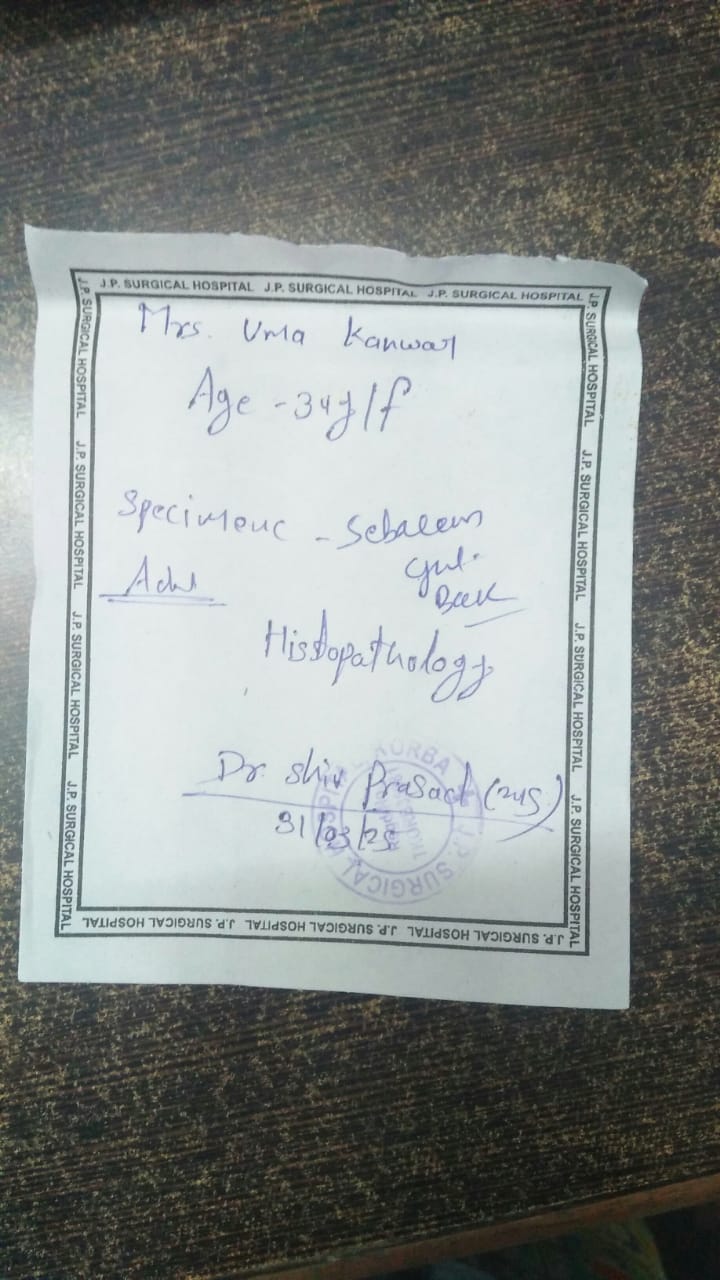 J.P. SURGICAL HOSPITAL J.P. SURGICAL HOSPITAL J.P. SURGICAL HOSPITAL
J.P. SURGICAL HOSPITAL J.P. SURGICAL HOSPITAL J.P. SURGICAL HOSPITAL J.P. SURGICAL HOSPITAL
J.P. SURGICAL HOSPITAL J.P. SURGICAL HOSPITAL J.P. SURGICAL HOSPITAL J.P. SURGICAL HOSPITAL
Mrs. Uma Kanwar
Age - 34y/f
Specimenc - Sebaceous
Adv
Back
Histopathology
Dr. Shiv Prasad
31/03/25
J.P. SURGICAL HOSPITAL KORBA
J.P. SURGICAL HOSPITAL J.P. SURGICAL HOSPITAL J.P. SURGICAL HOSPITAL